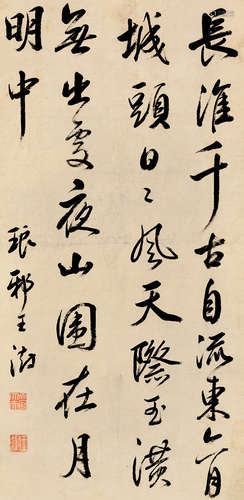 長淮千古自流東六月
城頭日〻風天際玉潢
無出處夜山圍在月
明中
琅邪王澍